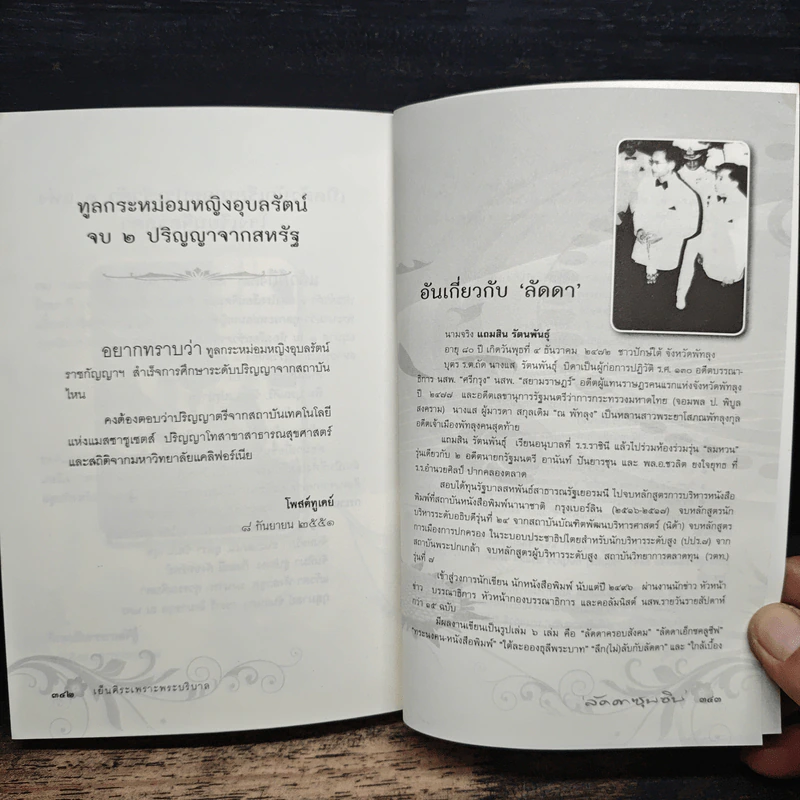 ทูลกระหม่อมหญิงอุบลรัตน์
จบ ๒ ปริญญาจากสหรัฐ
อยากทราบว่า ทูลกระหม่อมหญิงอุบลรัตน์
ราชกัญญาฯ สำเร็จการศึกษาระดับปริญญาจากสถาบัน
ไหน
คงต้องตอบว่าปริญญาตรีจากสถาบันเทคโนโลยี
แห่งแมสซาชูเซตส์ ปริญญาโทสาขาสาธารณสุขศาสตร์
และสถิติจากมหาวิทยาลัยแคลิฟอร์เนีย
โพสต์ทูเดย์
๘ กันยายน ๒๕๕๑
๓๔๒ เย็นศิระเพราะพระบริบาล
อันเกี่ยวกับ 'ลัดดา'
นามจริง แถมสิน รัตนพันธุ์
อายุ ๘๐ ปี เกิดวันพุธที่ ๔ ธันวาคม ๒๔๗๒ ชาวปักษ์ใต้ จังหวัดพัทลุง
บุตร ร.ต.ถัด นางแส รัตนพันธุ์ บิดาเป็นผู้ก่อการปฏิวัติ ร.ศ. ๑๓๐ อดีตบรรณา-
ธิการ นสพ. "ศรีกรุง" นสพ. "สยามราษฎร์" อดีตผู้แทนราษฎรคนแรกแห่งจังหวัดพัทลุง
ปี ๒๔๗๗ และอดีตเลขานุการรัฐมนตรีว่าการกระทรวงมหาดไทย (จอมพล ป. พิบูล
สงคราม) นางแส ผู้มารดา สกุลเดิม "ณ พัทลุง" เป็นหลานสาวพระยาโสภณพัทลุงกุล
อดีตเจ้าเมืองพัทลุงคนสุดท้าย
แถมสิน รัตนพันธุ์ เรียนอนุบาลที่ ร.ร.ราชินี แล้วไปร่วมห้องร่วมรุ่น "สมหวน"
รุ่นเดียวกับ ๒ อดีตนายกรัฐมนตรี อานันท์ ปันยารชุน และ พล.อ.ชวลิต ยงใจยุทธ ที่
ร.ร.อำนวยศิลป์ ปากคลองตลาด
สอบได้ทุนรัฐบาลสหพันธ์สาธารณรัฐเยอรมนี ไปจบหลักสูตรการบริหารหนังสือ
พิมพ์ที่สถาบันหนังสือพิมพ์นานาชาติ กรุงเบอร์ลิน (๒๕๑๖-๒๕๑๗) จบหลักสูตรนัก
บริหารระดับอธิบดีรุ่นที่ ๒๔ จากสถาบันบัณฑิตพัฒนบริหารศาสตร์ (นิด้า) จบหลักสูตร
การเมืองการปกครอง ในระบอบประชาธิปไตยสำหรับนักบริหารระดับสูง (ปปร.๗) จาก
สถาบันพระปกเกล้า จบหลักสูตรผู้บริหารระดับสูง สถาบันวิทยาการตลาดทุน (วตท.)
รุ่นที่ ๗
เข้าสู่วงการนักเขียน นักหนังสือพิมพ์ นับแต่ปี ๒๔๙๖ ผ่านงานนักข่าว หัวหน้า
ข่าว บรรณาธิการ หัวหน้ากองบรรณาธิการ และคอลัมนิสต์ นสพ.รายวันรายสัปดาห์
กว่า ๑๕ ฉบับ
มีผลงานเขียนเป็นรูปเล่ม ๖ เล่ม คือ "ลัดดาครอบสังคม" "ลัดดาเอ็กซคลูซีฟ"
"กระนงคน-หนังสือพิมพ์" "ใต้ละอองธุลีพระบาท" "ลึก(ไม่)ลับกับลัดดา" และ "ใกล้เบื้อง
'ลัดดาซุบซิบ' ๓๔๓